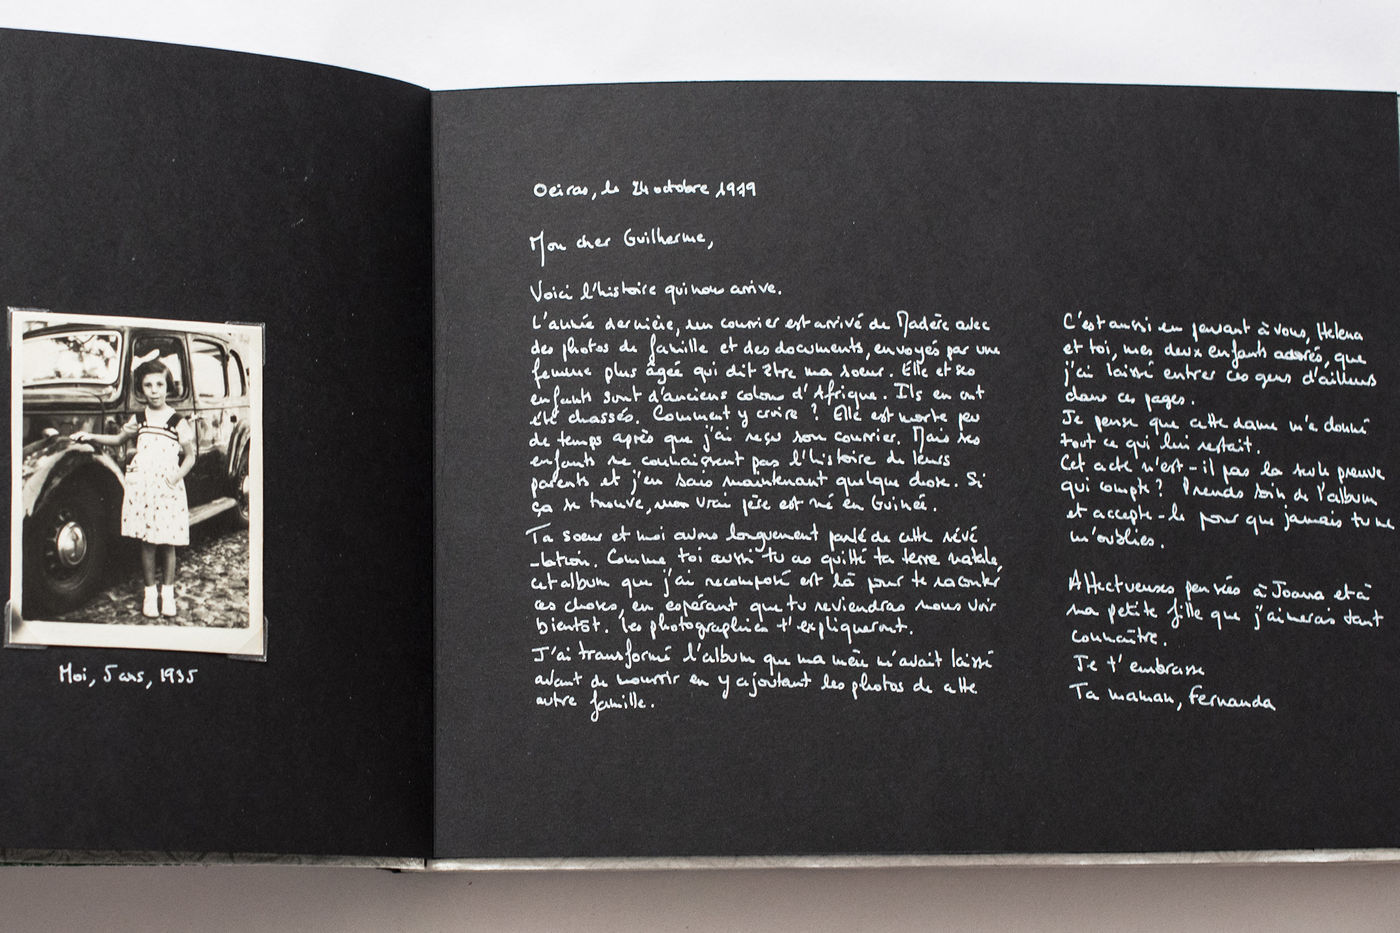 Moi, 5 ans, 1935
Oeiras, le 24 octobre 1979
Mon cher Guilherme,
Voici l'histoire qui nous arrive.
L'année dernière, un courrier est arrivé de Madère avec
des photos de famille et des documents, envoyés par une
femme plus âgée qui dit être ma soeur. Elle et ses
enfants sont d'anciens colons d'Afrique. Ils en ont
été chassés. Comment y croire ? Elle est morte peu
de temps après que j'ai reçu son courrier. Mais ses
enfants ne connaissent pas l'histoire de leurs
parents et j'en sais maintenant quelque chose. Si
ça se trouve, mon vrai père est né en Guinée.
Ta soeur et moi avons longuement parlé de cette révé
-lation. Comme toi aussi tu as quitté ta terre natale,
cet album que j'ai recomposé est là pour te raconter
ces choses, en espérant que tu reviendras nous voir
bientôt. Les photographies t'expliqueront.
J'ai transformé l'album que ma mère m'avait laissé
avant de mourrir en y ajoutant les photos de cette
autre famille.
C'est aussi en pensant à vous, Helena
et toi, mes deux enfants adorés, que
j'ai laissé entrer ces gens d'ailleurs
dans ces pages.
Je pense que cette dame m'a donné
tout ce qui lui restait.
Cet acte n'est-il pas la seule preuve
qui compte ? Prends soin de l'album
et accepte-le pour que jamais tu ne
m'oublies.
Affectueuses pensées à Joana et à
ma petite fille que j'aimerais tant
connaître.
Je t'embrasse
Ta maman, Fernanda